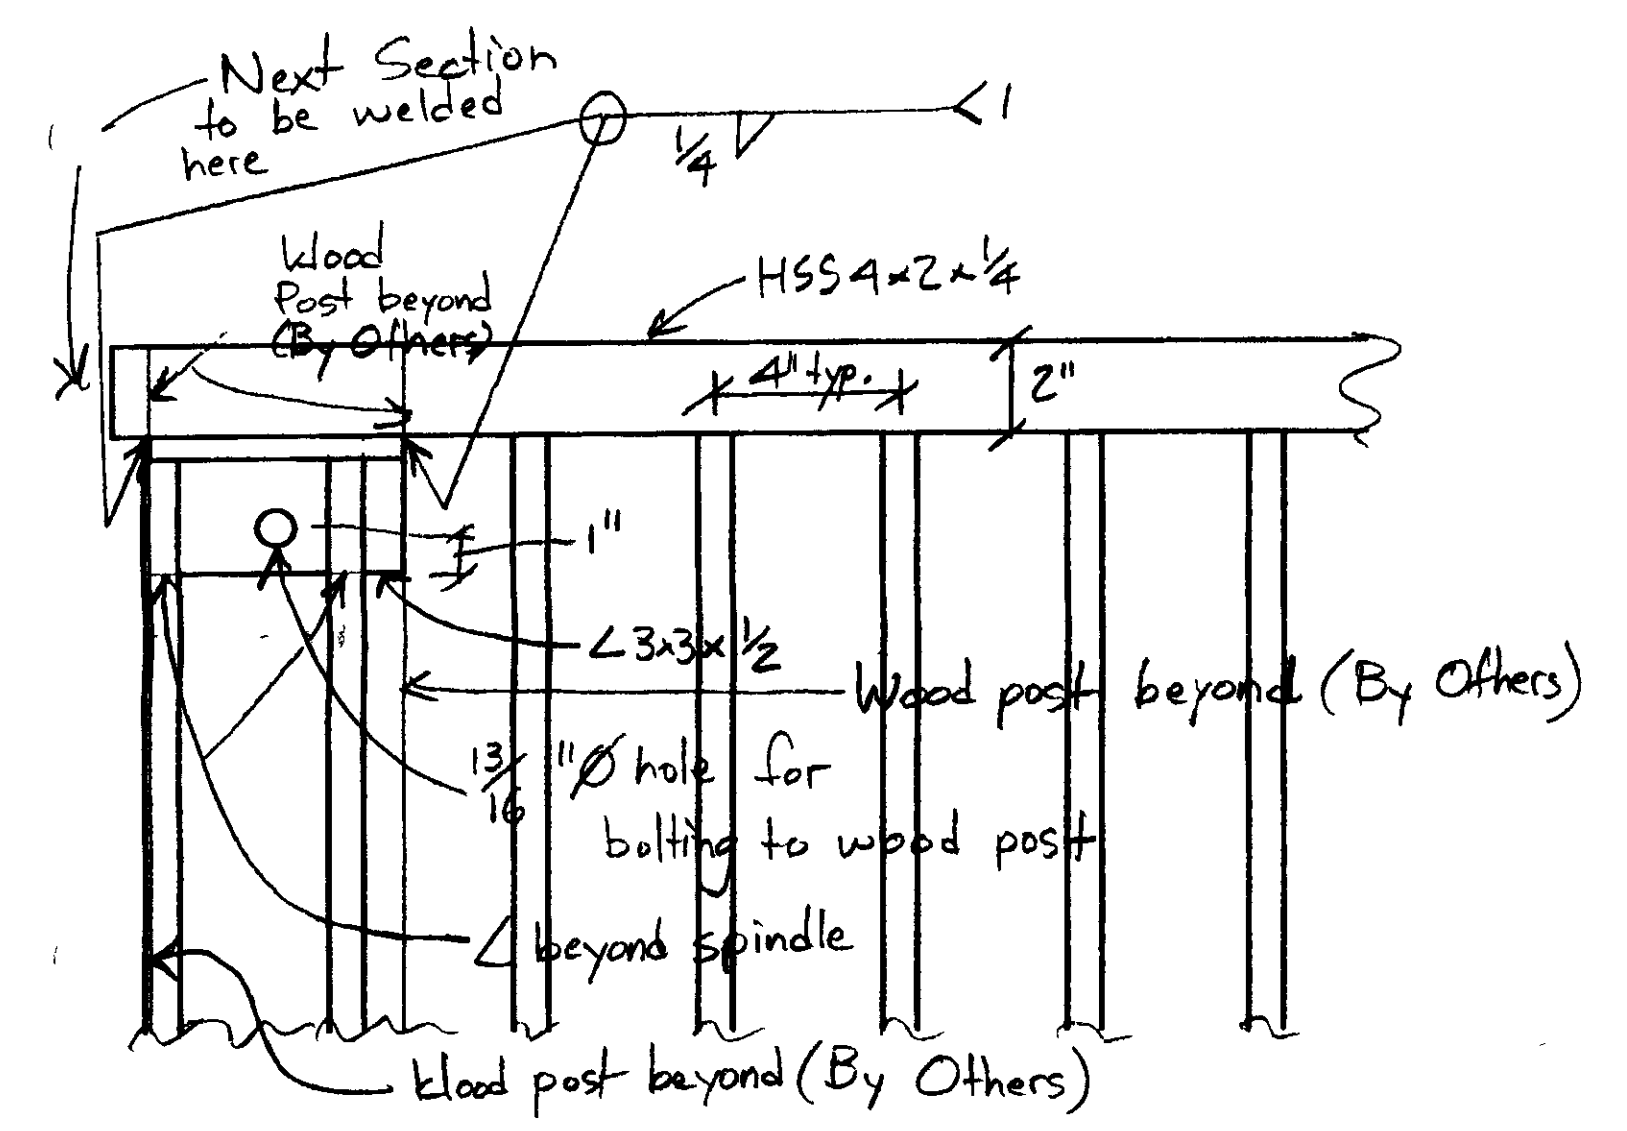 Next Section
to be welded
here
1/4
1
Wood
Post beyond
(By Others)
HSS 4x2x1/4
4" typ.
2"
1"
∠3x3x1/2
Wood post beyond (By Others)
13/16"Ø hole for
bolting to wood post
∠ beyond spindle
Wood post beyond (By Others)